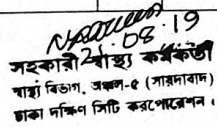 08.19
সহকারী স্বাস্থ্য কর্মকর্তা
স্বাস্থ্য বিভাগ, অঞ্চল-৫ (সায়দাবাদ)
ঢাকা দক্ষিণ সিটি করপোরেশন।